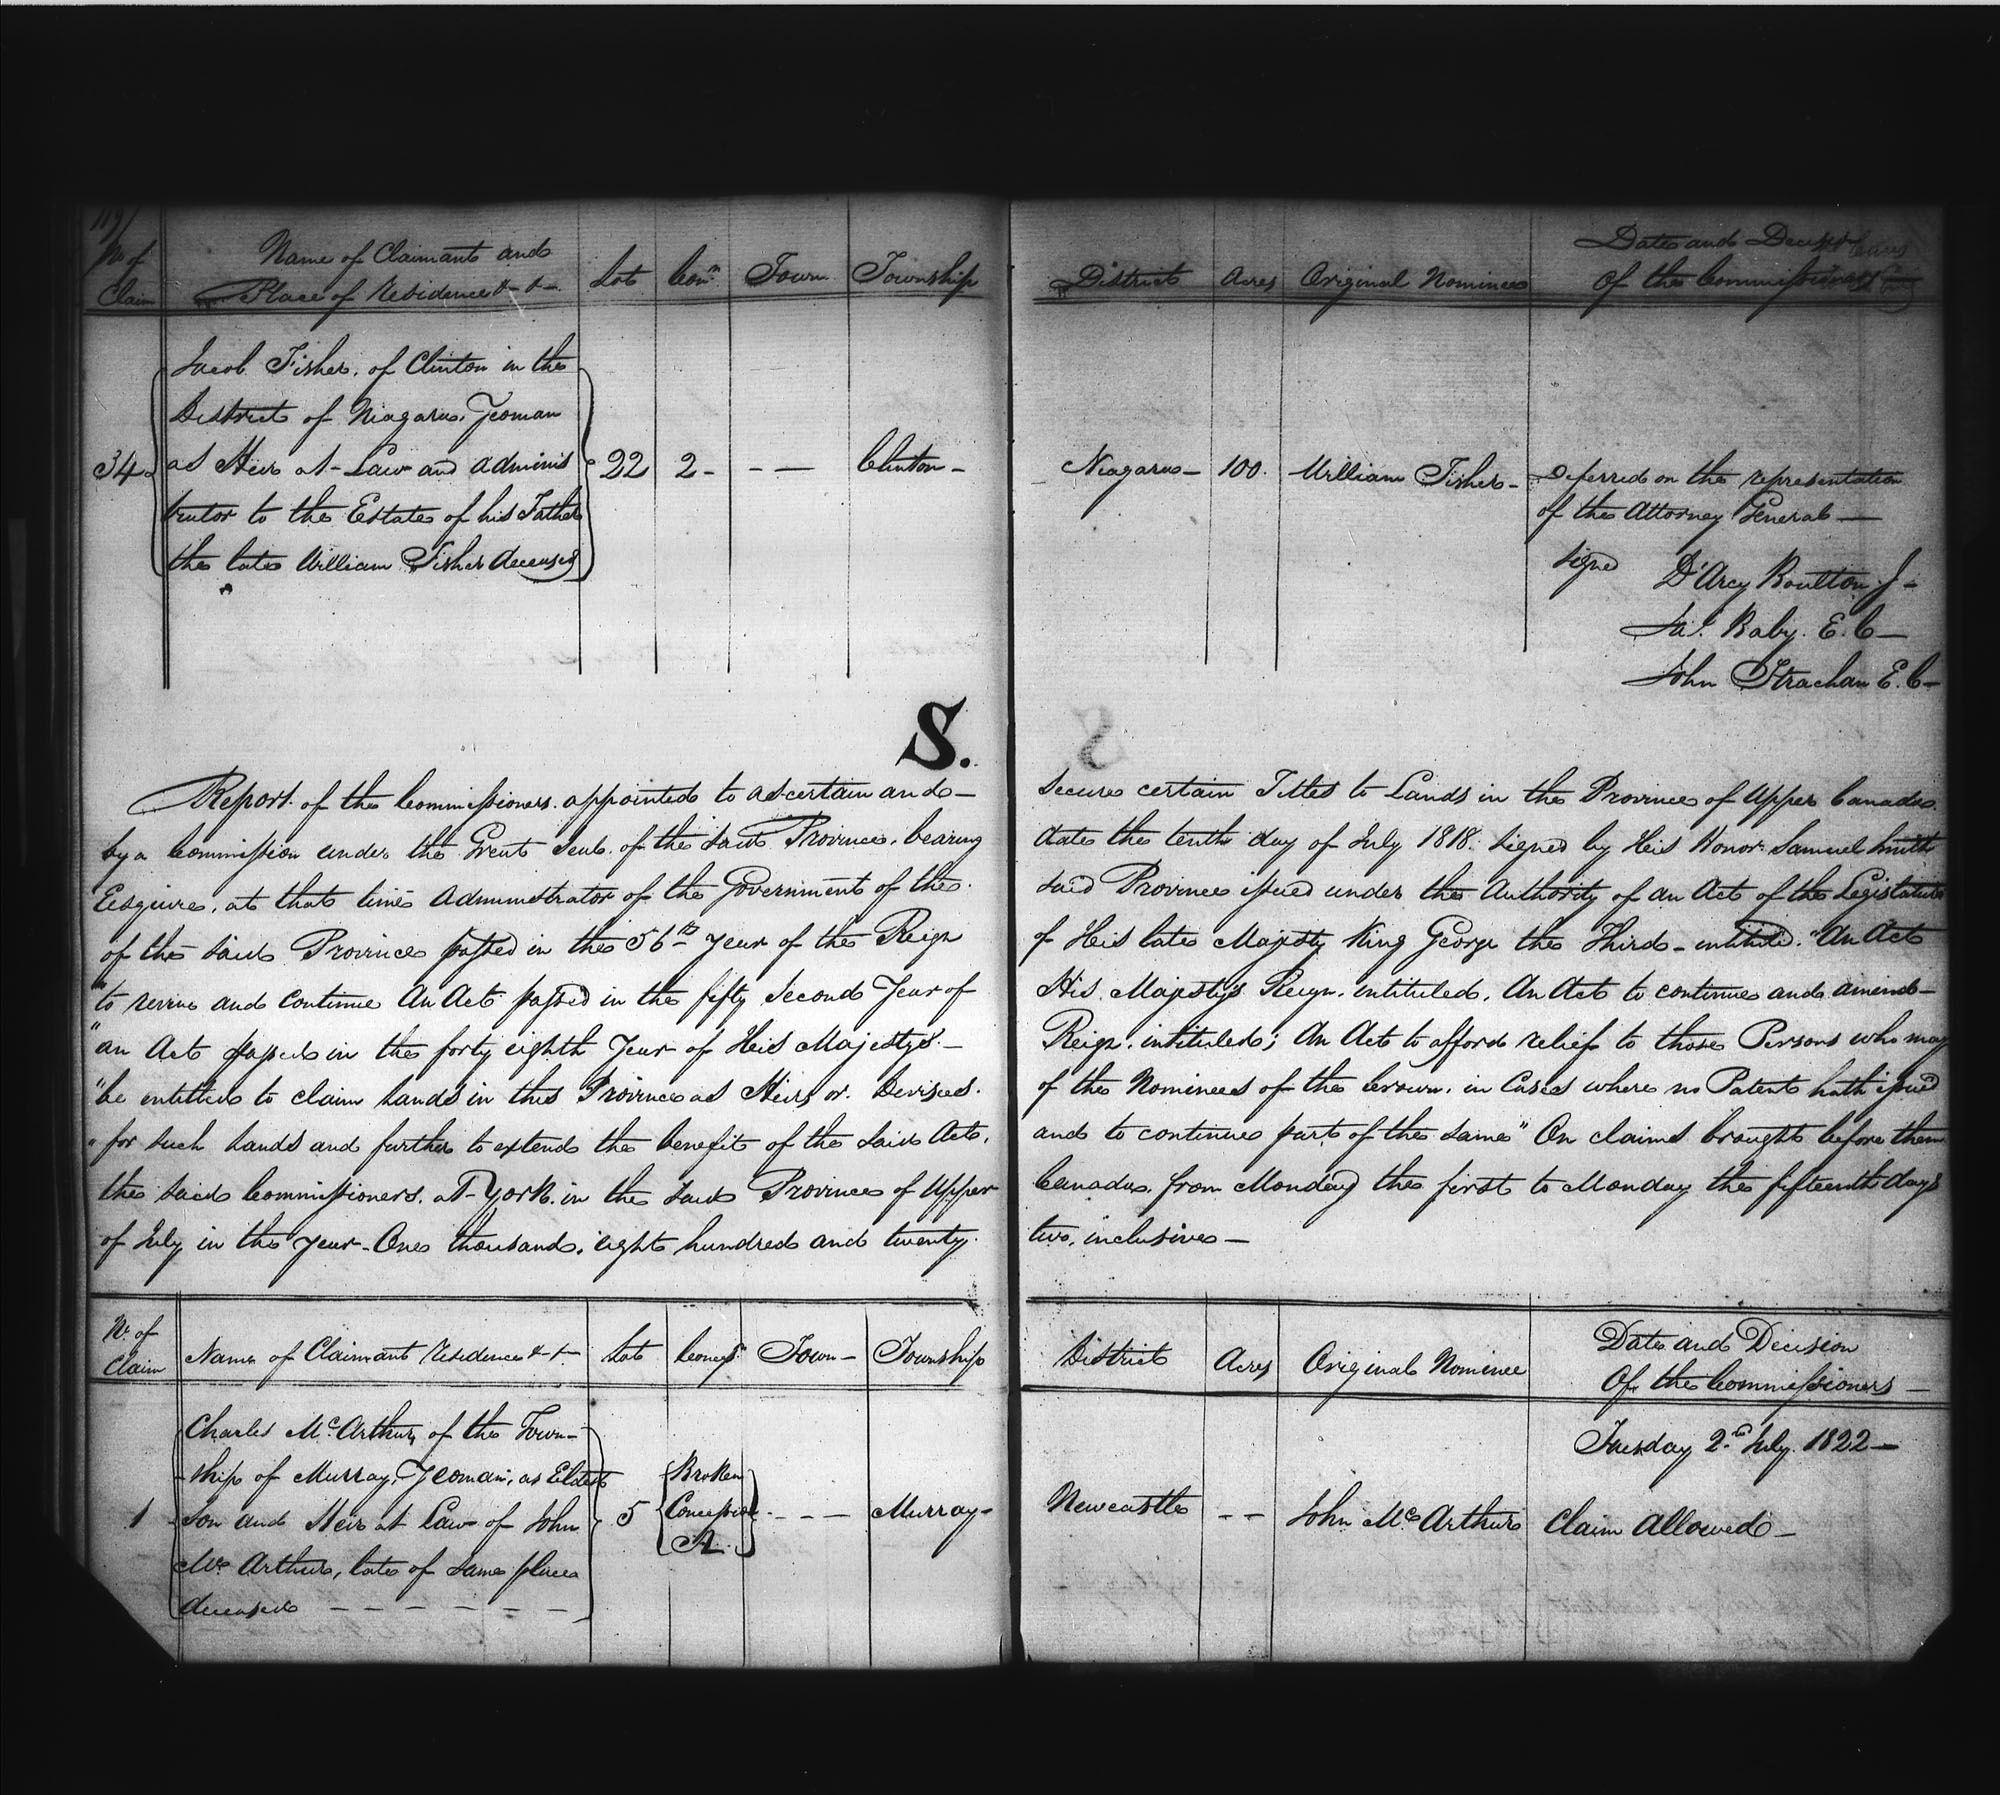 119
No of Claim
Name of Claimants and
Place of Residence &-&-
Lot
Conn
Town
Township
District
Acres
Original Nominee
Date and Decision
Of the Commissioners
Jacob Fisher, of Clinton in the
District of Niagara, Yeoman
34 as Heir at-Law and adminis 22 2- - — Clinton- Niagara- 100. William Fisher-
trator to the Estate of his Father
the late William Fisher deceased
Deferred on the representation
of the Attorney General—
signd D'Arcy Boulton J-
Jas. Baby. E.C-
John Strachan E.C-
S.
Report of the Commissioners appointed to ascertain and- secure certain Titles to Lands in the Province of Upper Canada.
by a Commission under the Great Seal of the said Province, bearing date the tenth day of July 1818. Signed by His Honor Samuel Smith
Esquire, at that time Administrator of the Government of the said Province issued under the Authority of an Act of the Legislature
of the said Province passed in the 56th year of the Reign of His late Majesty King George the Third- intituled. "An Act
"to revive and continue An Act passed in the fifty second Year of His Majesty's Reign, intituled, An Act to continue and amend-
"an Act passed in the forty eighth Year of His Majesty's- Reign. intituled; An Act to afford relief to those Persons who may
"be entitled to claim Lands in this Province as Heirs or Devisees. of the Nominees of the Crown, in Cases where no Patent hath issued
"for such Lands and further to extend the benefit of the said Act, and to continue part of the same" On claims brought before them
the said Commissioners, at York in the said Province of Upper Canada, from Monday the first to Monday the fifteenth days
of July in the year One thousand, eight hundred and twenty two, inclusive-
No. of Claim
Name of Claimant Residence &-&-
Lot
Town-
Township
District
Acres
Original Nominee
Date and Decision
Of the Commissioners-
Tuesday 2nd July. 1822-
Charles McArthur, of the Town-
ship of Murray, Yeoman, as Eldest
1 Son and Heir at Law of John 5 Broken Concession A - - - Murray- Newcastle - - John McArthur Claim Allowed-
McArthur, late of same place
deceased - - - - - - -